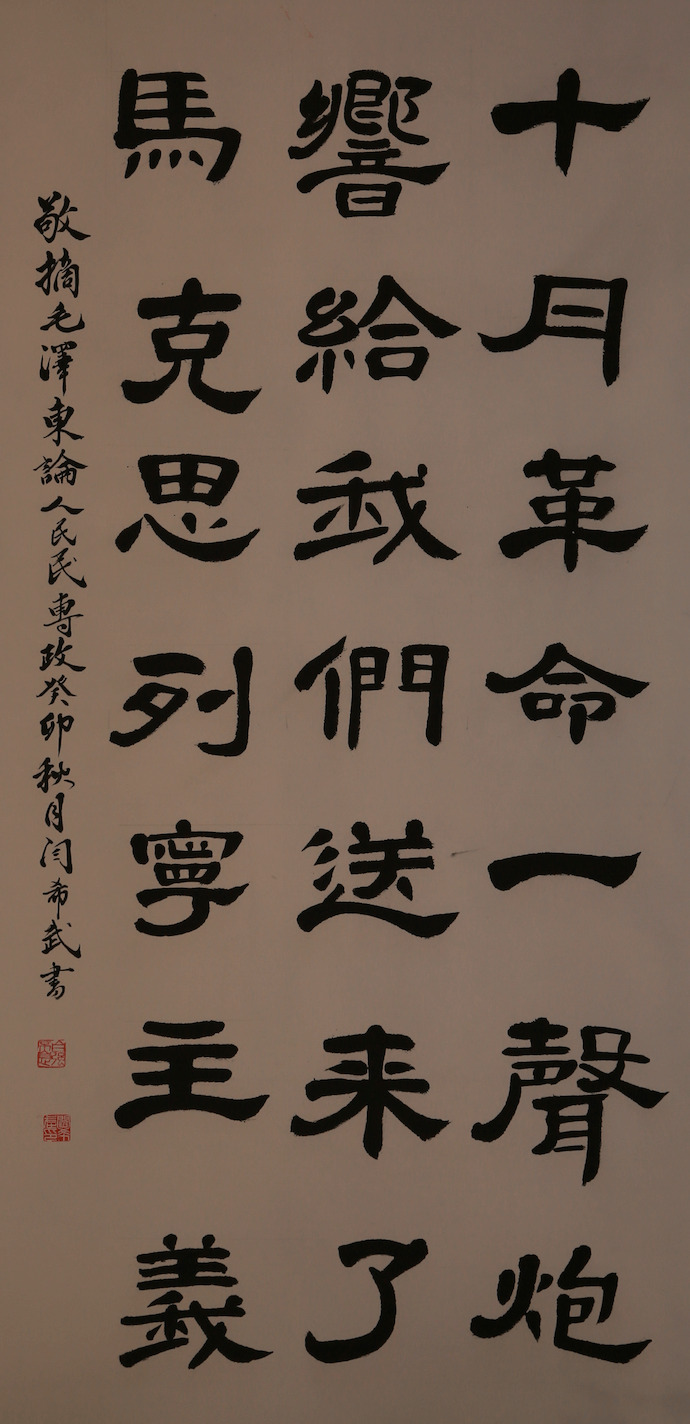 十月革命一聲炮
響給我們送来了
馬克思列寧主義
敬摘毛澤東論人民民專政癸卯秋月闫希武書